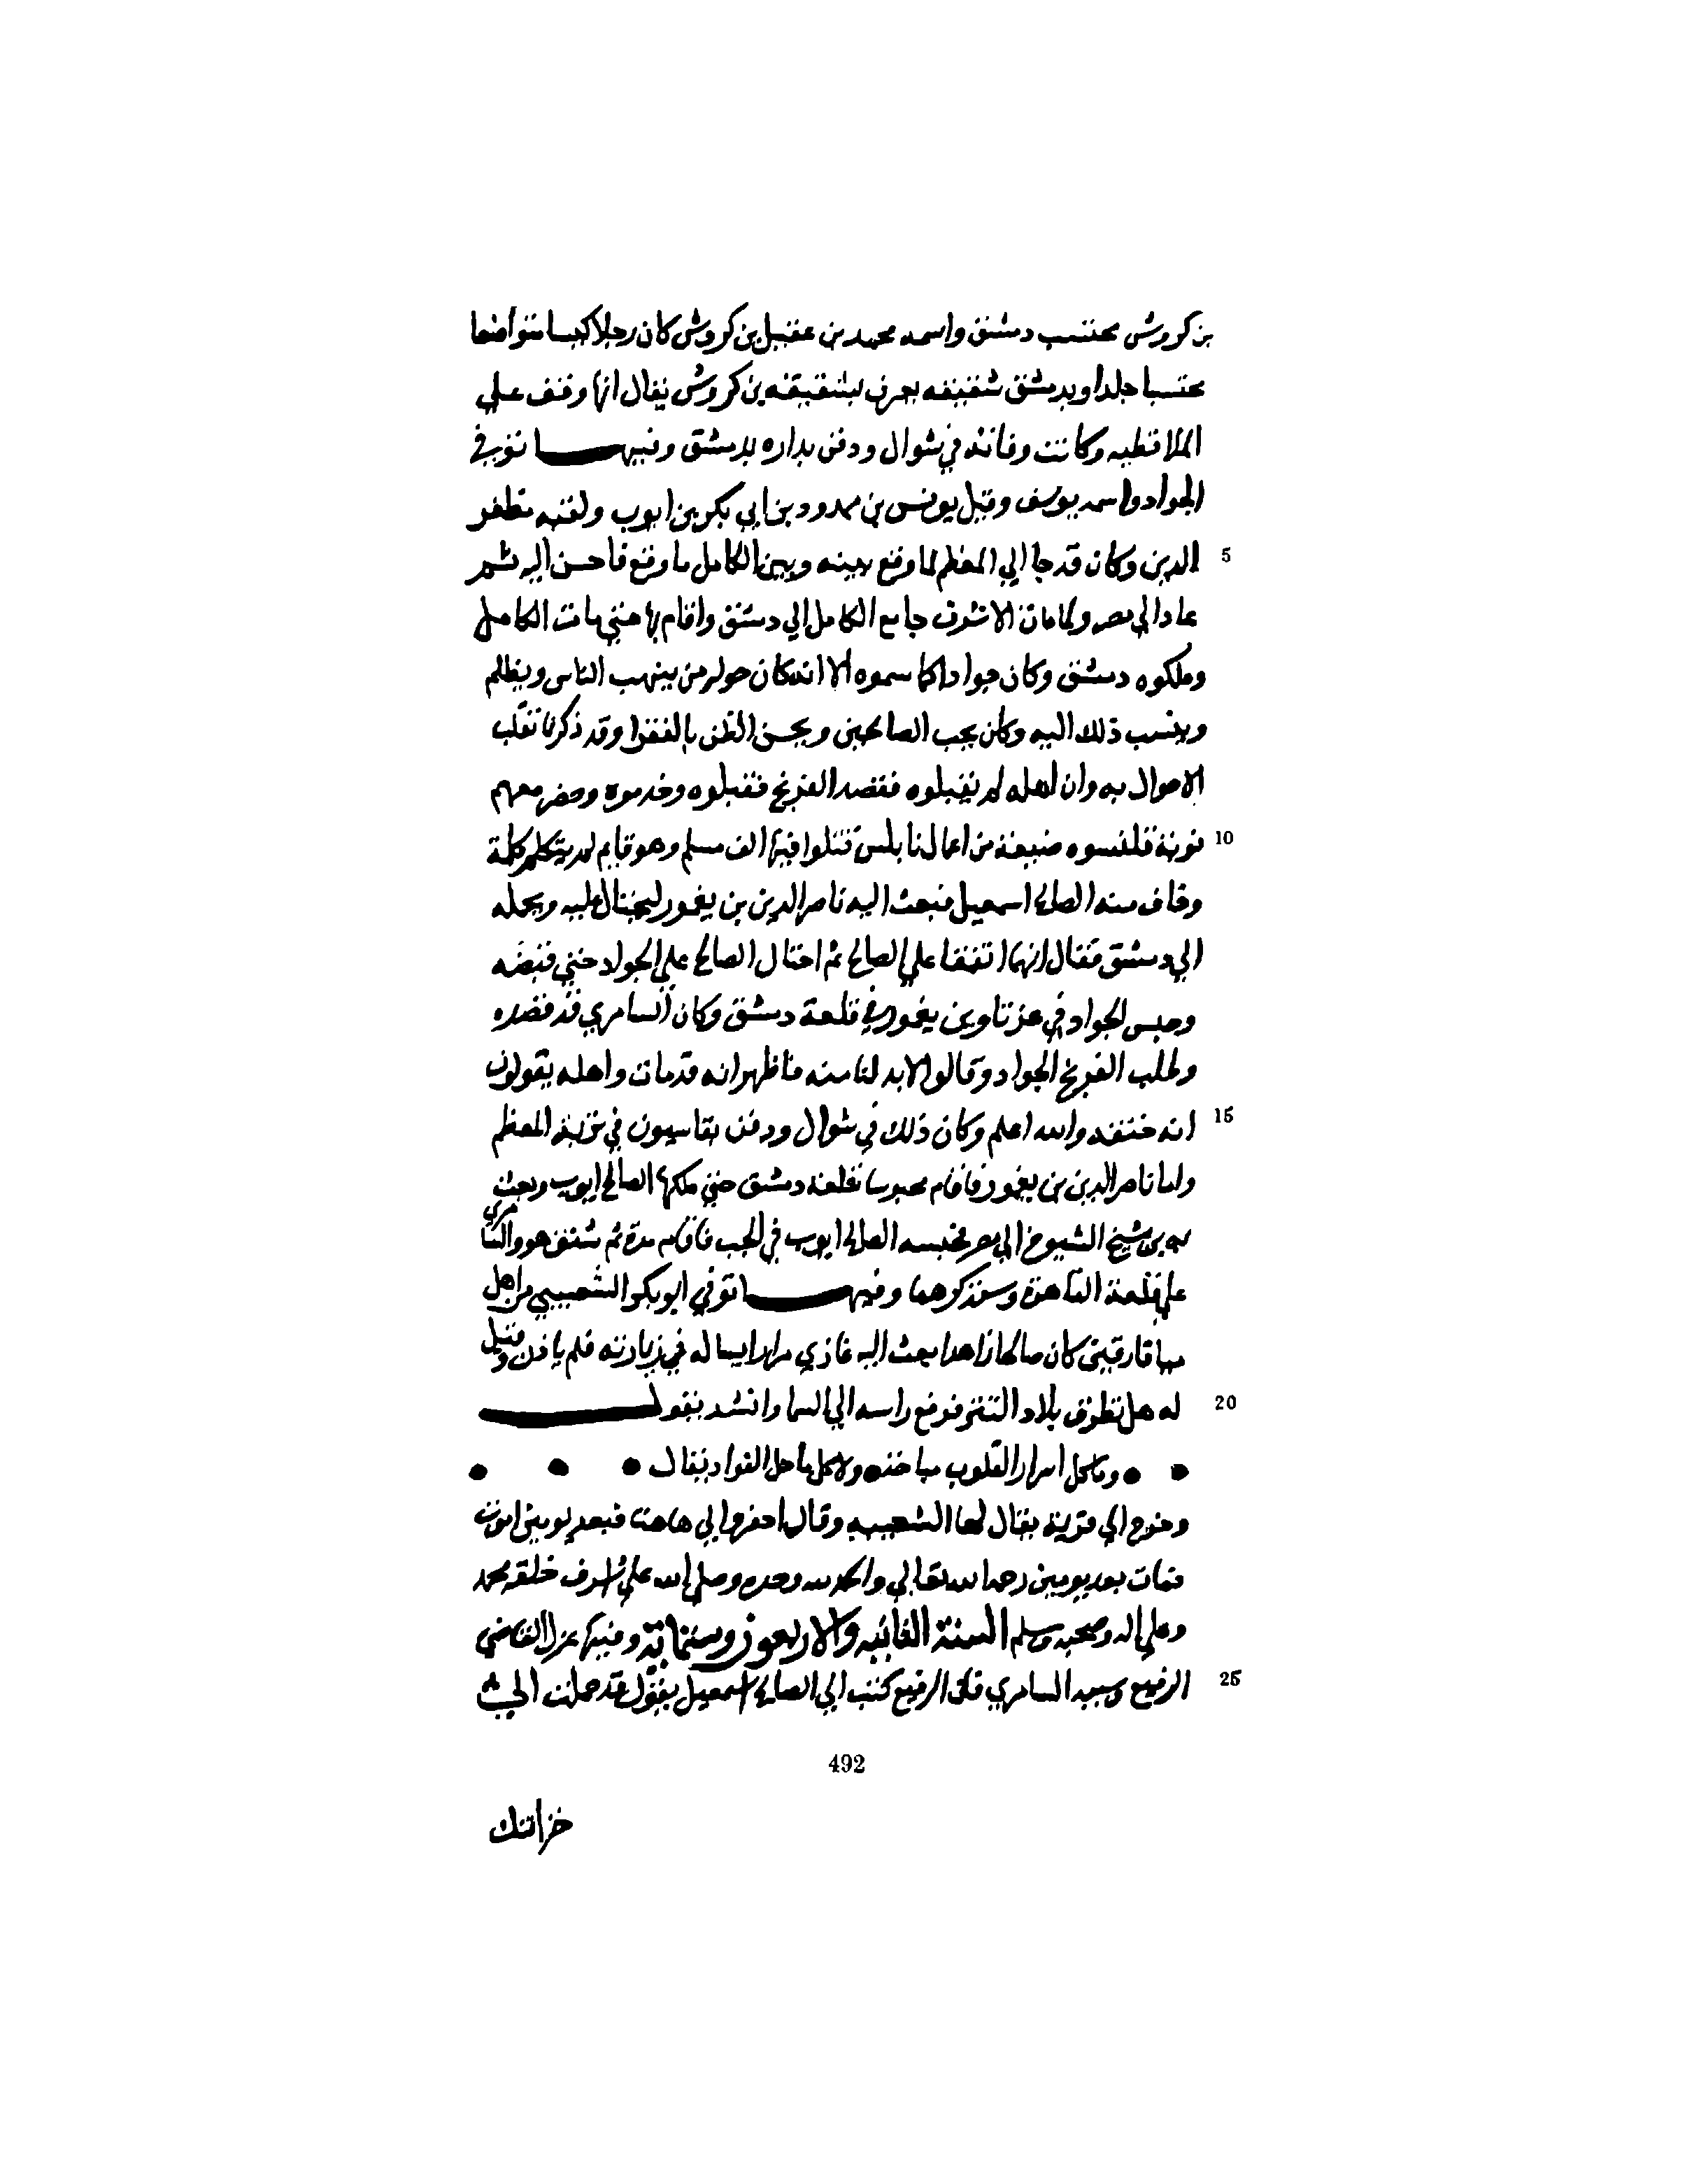 بن كروش محتسب دمشق واسمه محمد بن عقيل بن كروش كان رجلا كيسا متواضعا
محتسبا جلدا وبدمشق شقيقه يعرف بشقيقه بن كروش يقال انها وقف علي
وكانت وفاته في شوال ودفن بداره بدمشق وفيها توفي
الجواد واسمه يوسف وقيل يونس بن ممدود بن ابي بكر بن ايوب ولقبه مظفر
5 الدين وكان قد جا الي المعظم لما وقع بينه وبين الكامل ما وقع فاحسن اليه ثم
عاد الي مصر ولما مات الاشرف جا مع الكامل الي دمشق واقام بها حتي مات الكامل
وملكوه دمشق وكان جوادا كما سموه الا انه كان حوله من ينهب الناس ويظلم
وينسب ذلك اليه وكان يحب الصالحين ويحسن الظن بالفقرا وقد ذكرنا تقلب
الاحوال به وان اهله لم يقبلوه فقصد الفرنج فقبلوه وخدموه وحضر معهم
10 نوبة قلنسوه ضيعة من اعمال نابلس قتلوا فيها الف مسلم وهو قايم لم يتكلم كلمة
وخاف منه الصالح اسمعيل فبعث اليه ناصر الدين بن يغمور ليحتال عليه ويحمله
الي دمشق فقال انهما اتفقا علي الصالح ثم احتال الصالح علي الجواد حتي قبضه
وحبس الجواد في عزتا وبن يغمور في قلعة دمشق وكان السامري قد قصده
وطلب الفرنج الجواد وقالوا لا بد لنا منه فاظهر انه قد مات واهله يقولون
15 انه خنقه والله اعلم وكان ذلك في شوال ودفن بقاسيون في تربة المعظم
واما ناصر الدين بن يغمور فاقام محبوسا بقلعة دمشق حتي ملكها الصالح ايوب وبعث
به بن شيخ الشيوخ الي مصر فحبسه الصالح ايوب في الجب فاقام مدة ثم شنق هو والسامري
علي قلعة القاهرة وسنذكرهما وفيها توفي ابو بكر الشعيبي من اهل
ميافارقين كان صالحا زاهدا بعث اليه غازي مرارا يساله في زيارته فلم ياذن وقيل
20 له هل تطرق بلاد التتر فرفع راسه الي السما وانشد يقول
وما كل اسرار القلوب مباحة ولا كل ما حل الفواد يقال
وخرج الي قرية يقال لها الشعيبيه وقال احفروا لي هاهنا فبعد يومين اموت
فمات بعد يومين رحمه الله تعالي والحمد لله وحده وصلي الله علي اشرف خلقه محمد
وعلي اله وصحبه وسلم السنة الثانيه والاربعون وستماية وفيها عزل القاضي
25 الرفيع وسببه السامري فان الرفيع كتب الي الصالح اسمعيل يقول قد حملت الي
492
خزانتك